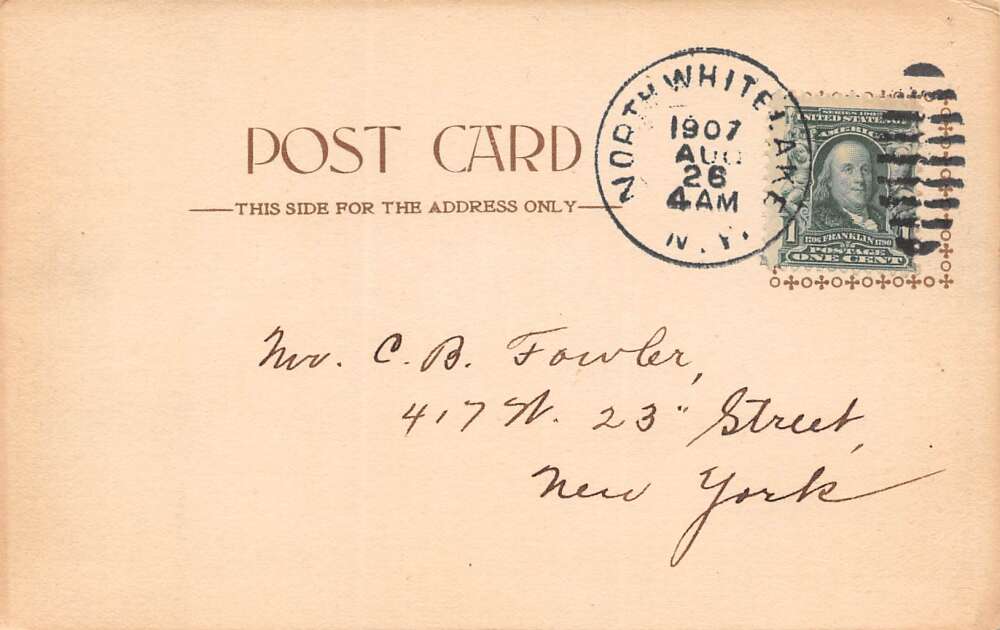 POST CARD
THIS SIDE FOR THE ADDRESS ONLY
NORTH WHITE LAKE
1907
AUG
26
4 AM
N.Y.
SERIES 1902
UNITED STATES OF
AMERICA
1706 FRANKLIN 1790
POSTAGE
1 ONE CENT
Mr. C. B. Fowler,
417 W. 23" Street,
New York